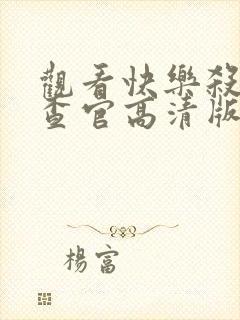 觀看快樂殺
查官高清版
楊富